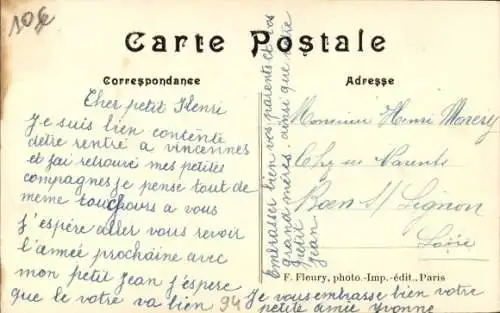 10f
Carte Postale
Correspondance
Adresse
Cher petit Henri
Je suis bien contente
detre rentré a vincennes
et j'ai retrouvé mes petites
compagnes je pense tout de
meme touchours a vous
j'espère aller vous revoir
l'année prochaine avec
mon petit Jean j'espère
que le votre va bien 94
Embrasser bien vos parents et vos
grand mères. ainsi que votre
petit
Jean
Je vous embrasse bien votre
petite amie Yvonne
Monsieur Henri
Chez ses Parents
Boen s/ Lignon
Loire
F. Fleury, photo.-Imp.-édit., Paris